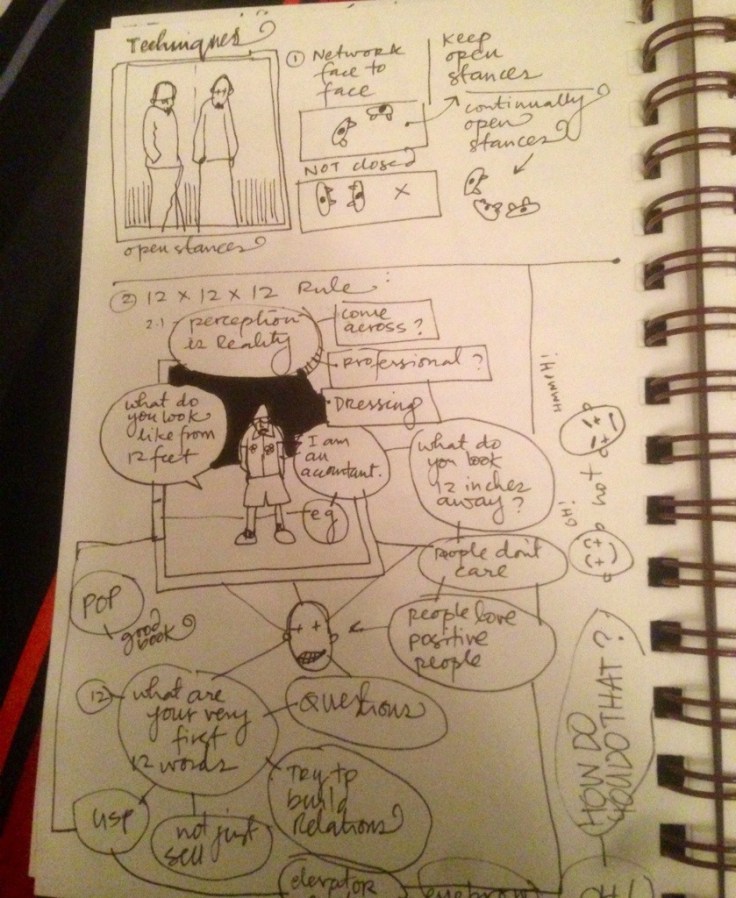 Techniques
① Network
face to
face
Keep
open
stances
continually
open
stances
NOT closed
X
open stances
② 12 x 12 x 12 Rule
2.1
perception
is Reality
come
across?
professional?
Dressing
what do
you look
like from
12 feet
I am
an
accountant.
eg
what do
you look
12 inches
away?
people don't
care
people love
positive
people
HMMM!
not
OH!
POP
good
book
12
what are
your very
first
12 words
Questions
Try to
build
Relations
USP
not just
sell
HOW DO
YOU DO THAT?
elevator
eyebrow
OH!